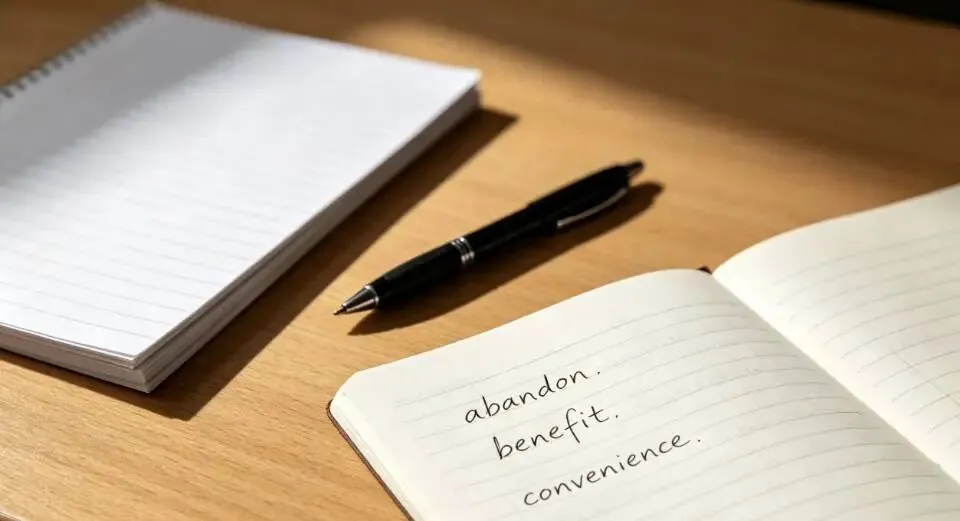 abandon.
benefit.
convenience.